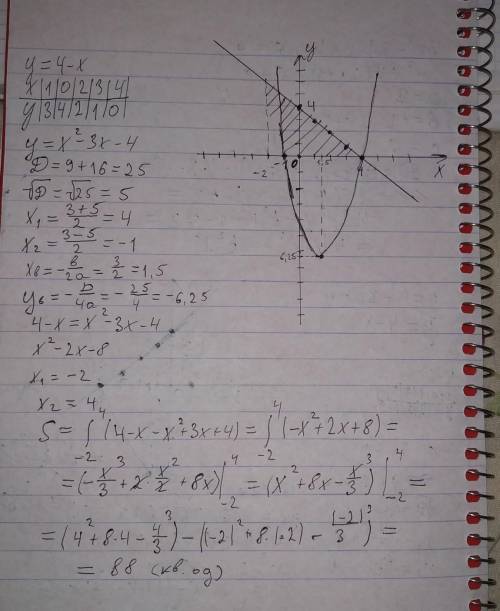 y = 4-x
x|1|0|2|3|4|
y|3|4|2|1|0|
y = x² - 3x - 4
D = 9 + 16 = 25
√D = √25 = 5
x₁ = (3+5)/2 = 4
x₂ = (3-5)/2 = -1
xв = -в/2a = 3/2 = 1,5
yв = -D/4a = -25/4 = -6,25
4-x = x² - 3x - 4
x² - 2x - 8
x₁ = -2
x₂ = 4
S = ∫₋₂⁴ (4-x-x²+3x+4) = ∫₋₂⁴ (-x²+2x+8) =
= (-x³/3 + 2·x²/2 + 8x)|₋₂⁴ = (x² + 8x - x³/3)|₋₂⁴ =
= (4² + 8·4 - 4³/3) - ((-2)² + 8·(-2) - (-2)³/3) =
= 88 (кв. од)
y
4
-2 -1 0 1,5 4 x
6,25